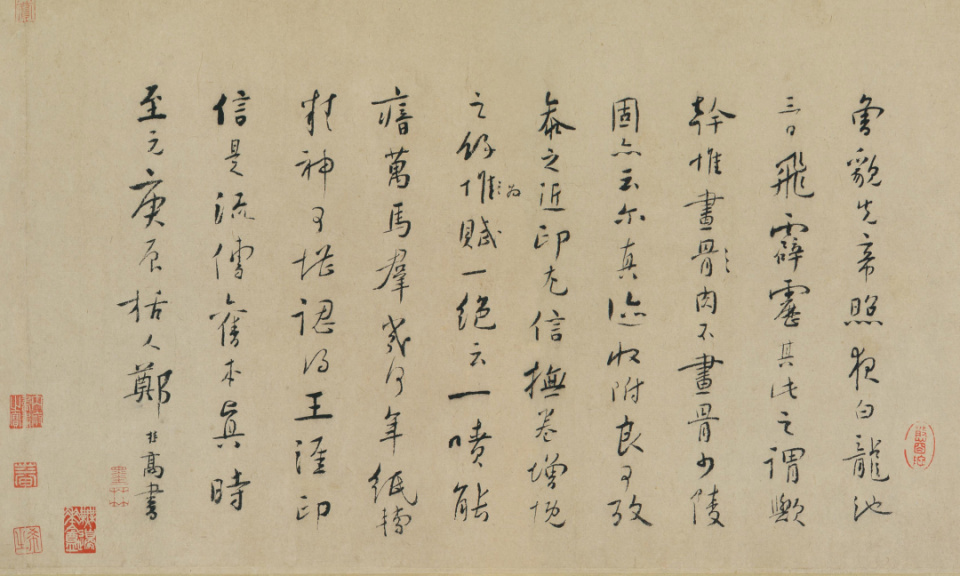 曾貌先帝照夜白龍池
三日飛霹靂其此之謂歟
幹惟畫肉不畫骨少陵
固亦云尔真迹收附良可攷
叅之近印尤信撫卷增慨
之餘為賦一絕云一噴能
瘖萬馬羣幾何年紙轉
精神可堪認得王涯印
信是流傳舊本真時
至元庚辰括人鄭高書